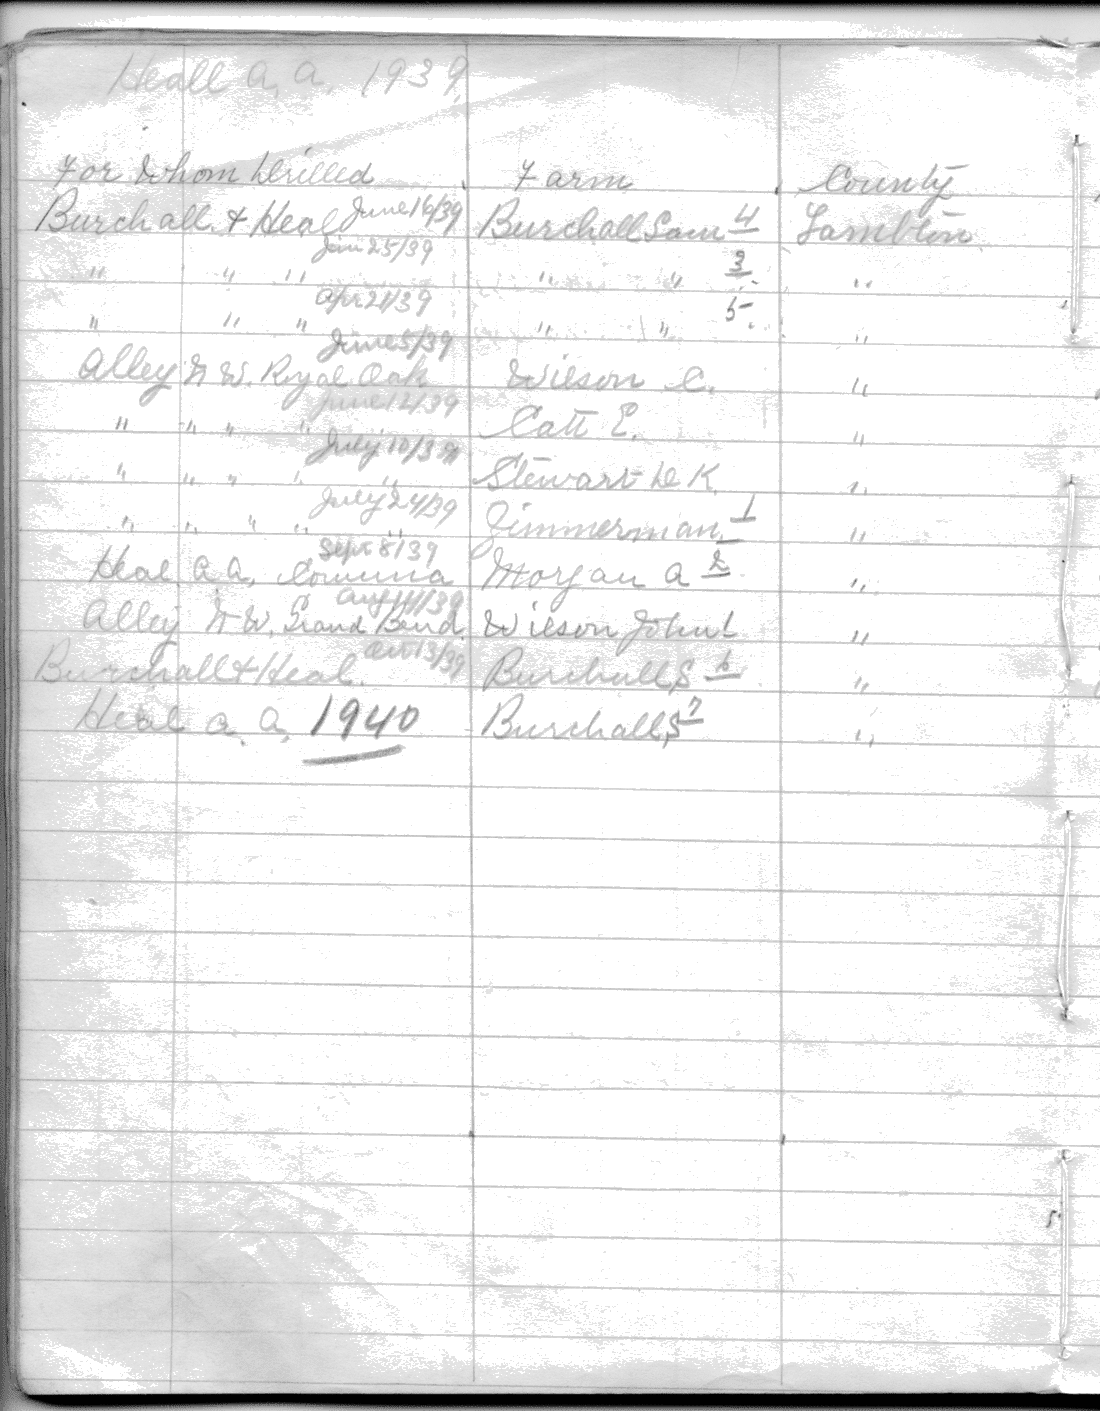 Heall A. A. 1939.
For Whom Drilled Farm County
Burchall & Heal June 16/39 Burchall Sam 4 Lambton
Jan 25/39
" " " " " 3 "
Apr 21/39
" " " " " 5 "
June 5/39
Alley N W. Royal Oak Wilson C. "
June 12/39
" " " " Catt E. "
July 10/39
" " " " " Stewart D K. "
July 24/39
" " " " " Zimmerman 1 "
Sept 8/39
Heal A. A. Corunna Morgan A 2 "
Aug 14/39
Alley N W. Grand Bend. Wilson John 1 "
Oct 13/39
Burchall & Heal. Burchall, S 6 "
Heal A. A. 1940 Burchall, S 7 "